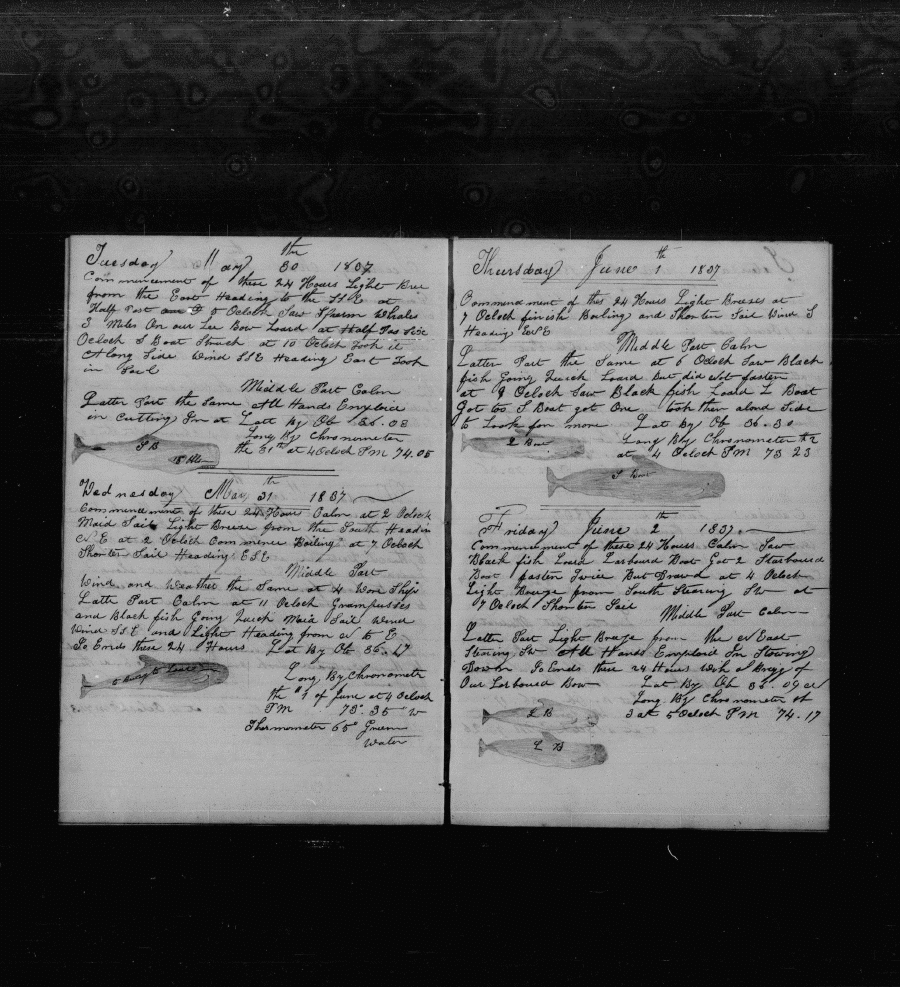 Tuesday May 30th 1837
Commencement of these 24 Hours Light Bree
from the East Heading to the SSE at
Half Past 5 Ocloch Saw Sperm Whales
3 Miles On our Lee Bow Loard at Half Pas
Ocloch S Boat Struch at 10 Ocloch Took it
Along Side Wind SSE Heading East Took
in Sail
Middle Part Calm
Latter Part the Same All Hands
in Cutting In at Latt By Ob 36.03
Long By Chronometer
the 31st at 4 Ocloch PM 74.05
S B
Wednesday May 31th 1837
Commencement of these 24 Hour Calm at 2 Ocloch
Maid Sail Light Breeze from the South Headin
N E at 2 Ocloch Commence Boiling at 7 Ocloch
Shorten Sail Heading ESE
Middle Part
Wind and Weather the Same at 4 Wore Ship
Latte Part Calm at 11 Ocloch Grampusses
and Black fish Going Quich Maid Sail Wind
Wind SSE and Light Heading from N to E
So Ends these 24 Hours Lat By Ob 36.17
Long By Chronometer
the of June at 4 Ocloch
PM 73.35 W
Thermometer 65° Green
Water
Thursday June 1th 1837
Commencment of this 24 Hours Light Breezes at
7 Ocloch finish Boiling and Shorten Sail Wind S
Heading ESE
Middle Part Calm
Latter Part the Same at 6 Ocloch Saw Black
fish Going Quich Loard but did Not fasten
at 9 Ocloch Saw Black fish Loard L Boat
Got S Boat got One took them alond Side
to Look for more Lat By Ob 36.30
Long By Chronometer
at 4 Ocloch PM 73 23
L Boat
S Boat
Friday June 2th 1837
Commencement of these 24 Hours Calm Saw
Black fish Loard Larbound Boat Got 2 Starbourd
Boat fasten Twice But Drawd at 4 Ocloch
Light Breeze from South Stearing SW at
7 Ocloch Shorten Sail
Middle Part Calm
Latter Part Light Breeze from the N East
Stering SW All Hands Emploid In Stowing
Down So Ends these 24 Hours With a Brig of
Our Larbourd Bow Lat By Ob 36.09 N
Long By Chronometer
3 at 5 Ocloch PM 74.17
L B
L B